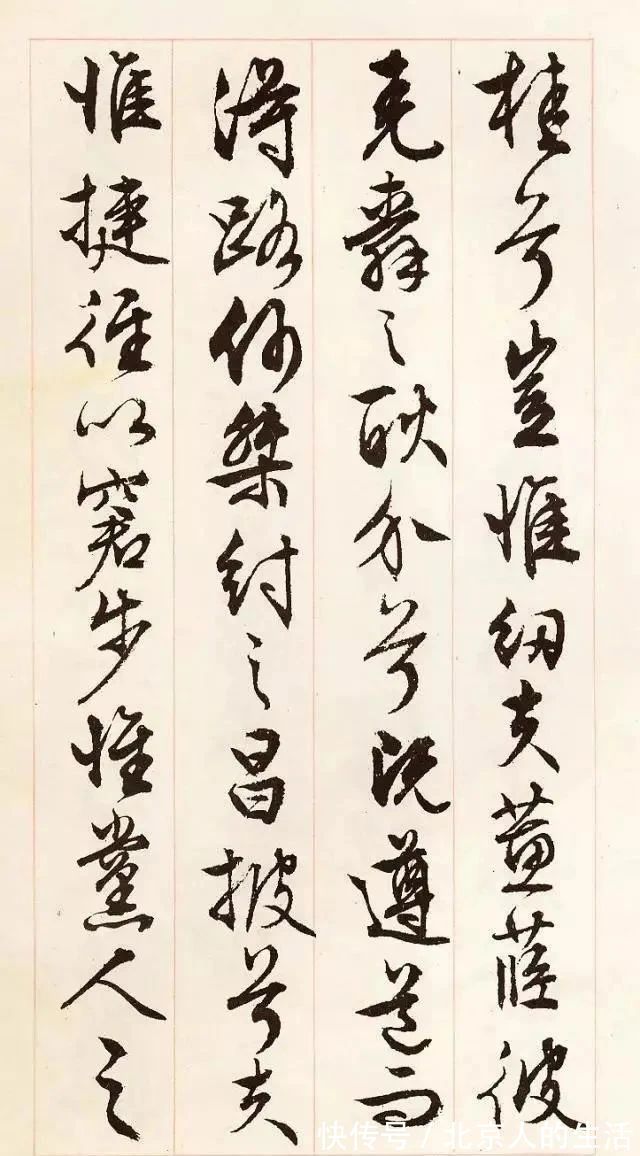 桂兮豈惟紉夫蕙茝彼
堯舜之耿介兮既遵道而
得路何桀紂之昌披兮夫
惟捷徑以窘步惟黨人之
快传号 / 北京人的生活